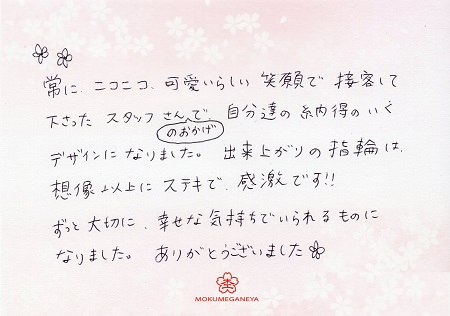 常に、ニコニコ、可愛いらしい笑顔で接客して
下さったスタッフさんのおかげで、自分達の納得のいく
デザインになりました。出来上がりの指輪は、
想像以上にステキで、感激です!!
ずっと大切に、幸せな気持ちでいられるものに
なりました。ありがとうございました
MOKUMEGANEYA